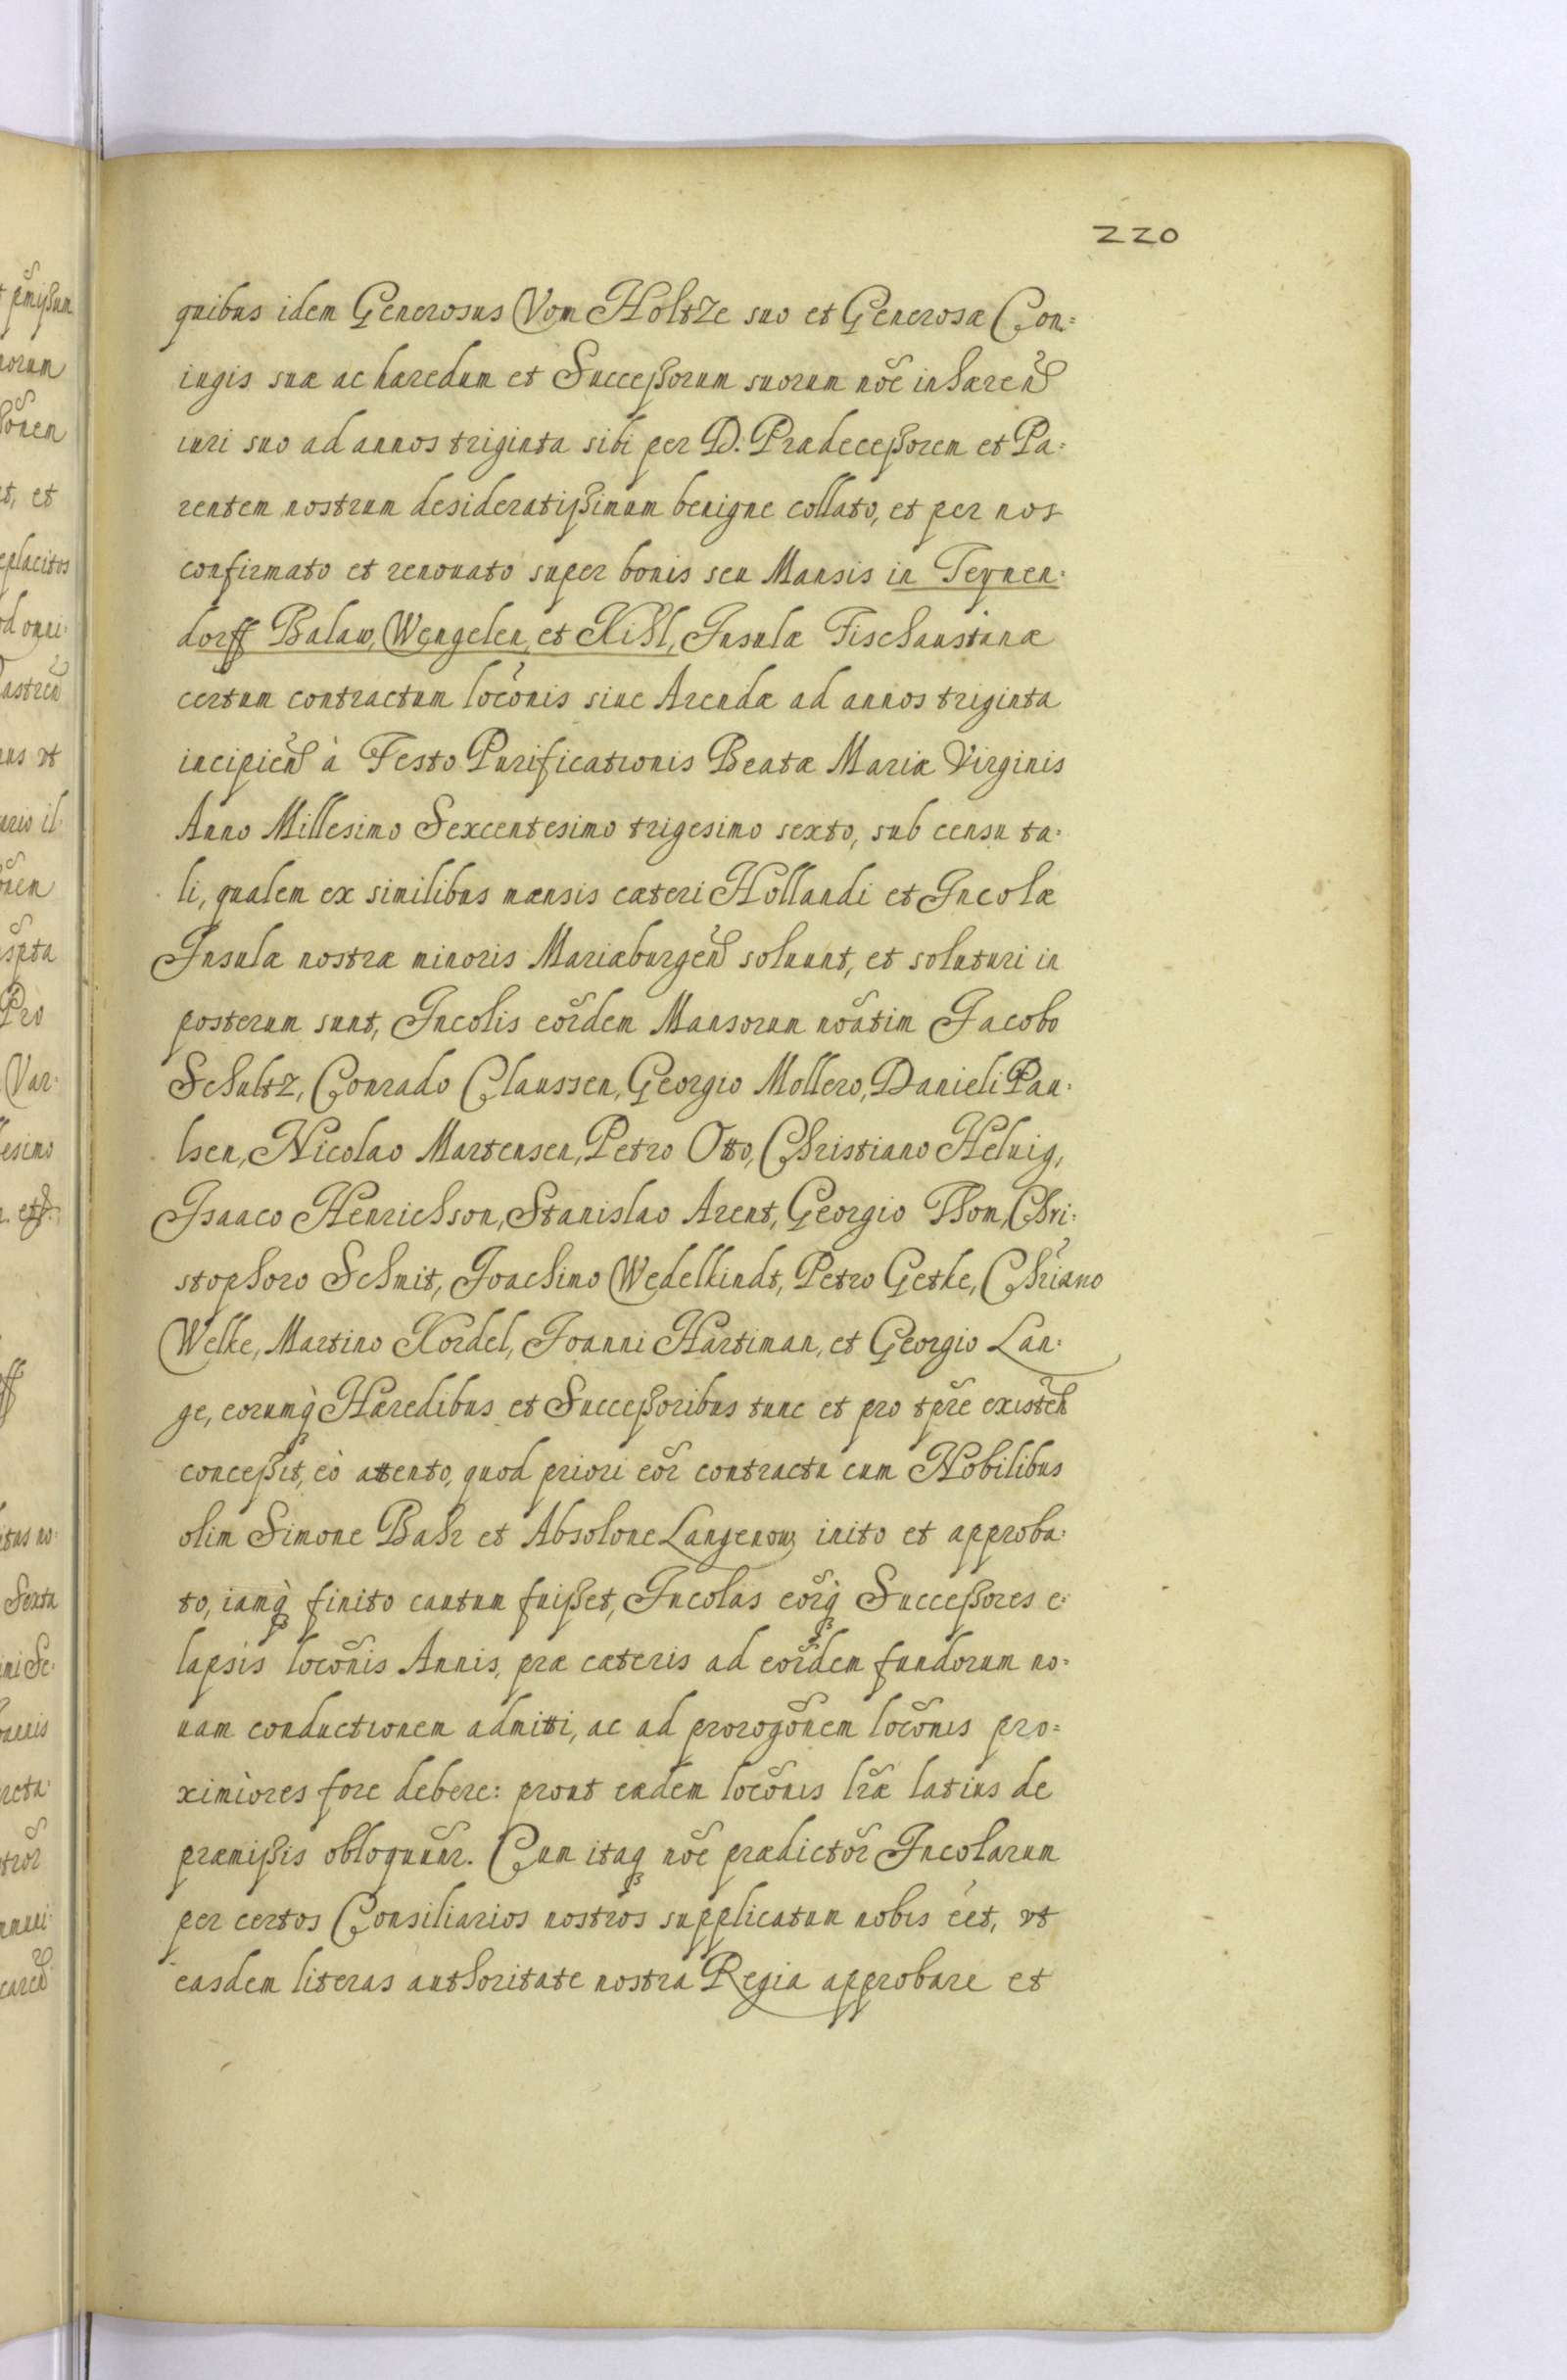 220
quibus idem Generosus Vom Holtze suo et Generosæ Con=
iugis suæ ac hæredum et Succeßorum suorum nõe inhæreñ
iuri suo ad annos triginta sibi per D. Prædeceßorem et Pa=
rentem nostrum desideratißimum benigne collato, et per nos
confirmato et renouato super bonis seu Mansis in Teynen=
dorff Balaw, Wengelen, et Kihl, Insulæ Fischaustinæ
certum contractum locõnis siue Arendæ ad annos triginta
incipieñ à Festo Purificationis Beatæ Mariæ Virginis
Anno Millesimo Sexcentesimo trigesimo sexto, sub censu ta=
li, qualem ex similibus mansis cæteri Hollandi et Incolæ
Insulæ nostræ minoris Mariæburgeñ soluunt, et soluturi in
posterum sunt, Incolis eor̃dem Mansorum noãtim Jacobo
Schultz, Conrado Claussen, Georgio Mollero, Danieli Pau=
lsen, Nicolao Martensen, Petro Otto, Christiano Heluig,
Isaaco Henrichson, Stanislao Arent, Georgio Thom, Chri=
stophoro Schmit, Joachimo Wedelkindt, Petro Getke, Chr̃iano
Welke, Martino Kordel, Joanni Hartiman, et Georgio Lan=
ge, eorumq̀ Hæredibus et Succeßoribus tunc et pro tp̃re existeñ
conceßit, eò attento, quod priori eor̃ contractu cum Nobilibus
olim Simone Bahr et Absolone Langenow inito et approba=
to, iamq̀ finito cautum fuißet, Incolas eor̃q̀ Succeßores e=
lapsis locõnis Annis, præ cæteris ad eor̃dem fundorum no=
uam conductionem admitti, ac ad prorogõnem locõnis pro=
ximiores fore debere: prout eædem locõnis lr̃æ latius de
præmißis obloquunr̃. Cum itaq nõe prædictor̃ Incolarum
per certos Consiliarios nostros supplicatum nobis eẽt, vt
easdem literas authoritate nostra Regia approbare et